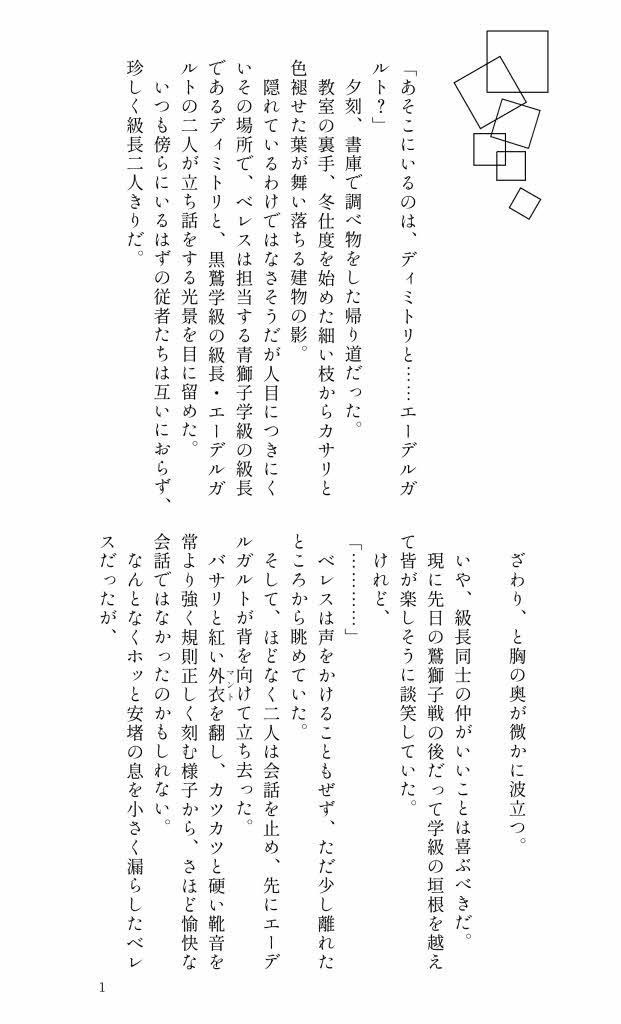 「あそこにいるのは、ディミトリと……エーデルガ
ルト？」
夕刻、書庫で調べ物をした帰り道だった。
教室の裏手、冬仕度を始めた細い枝からカサリと
色褪せた葉が舞い落ちる建物の影。
隠れているわけではなさそうだが人目につきにく
いその場所で、ベレスは担当する青獅子学級の級長
であるディミトリと、黒鷲学級の級長・エーデルガ
ルトの二人が立ち話をする光景を目に留めた。
いつも傍らにいるはずの従者たちは互いにおらず、
珍しく級長二人きりだ。
ざわり、と胸の奥が微かに波立つ。
いや、級長同士の仲がいいことは喜ぶべきだ。
現に先日の鷲獅子戦の後だって学級の垣根を越え
て皆が楽しそうに談笑していた。
けれど、
「…………」
ベレスは声をかけることもぜず、ただ少し離れた
ところから眺めていた。
そして、ほどなく二人は会話を止め、先にエーデ
ルガルトが背を向けて立ち去った。
バサリと紅い外衣マントを翻し、カツカツと硬い靴音を
常より強く規則正しく刻む様子から、さほど愉快な
会話ではなかったのかもしれない。
なんとなくホッと安堵の息を小さく漏らしたベレ
スだったが、
1